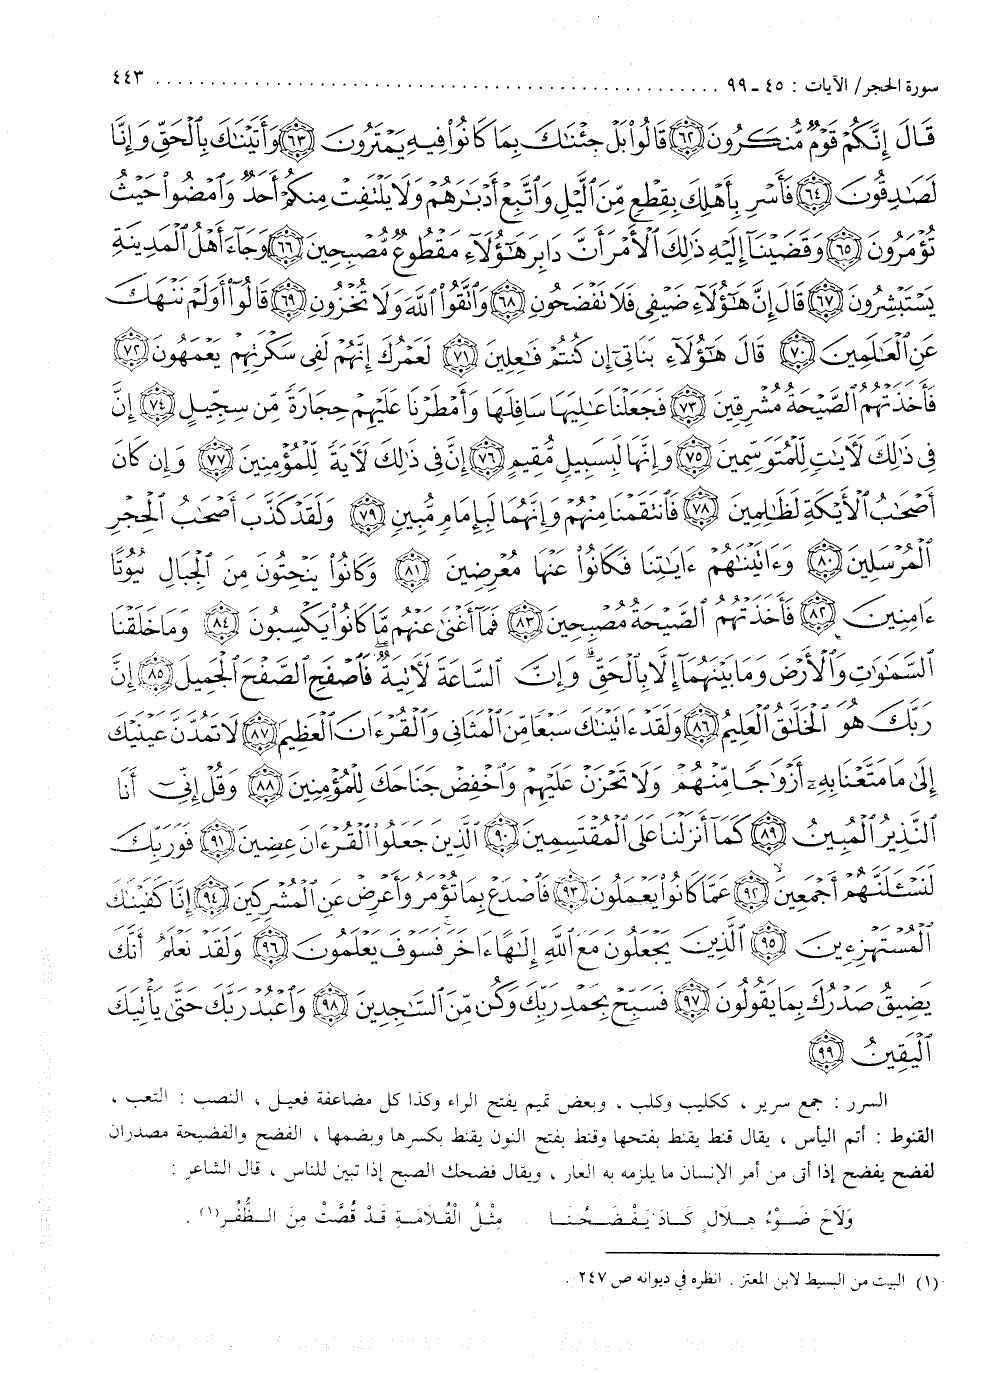 سورة الحجر/ الآيات : ٤٥ ـ ٩٩ ........................................................ ٤٤٣
قَالَ إِنَّكُمْ قَوْمٌ مُّنكَرُونَ ﴿٦٢﴾ قَالُوا۟ بَلْ جِئْنَٰكَ بِمَا كَانُوا۟ فِيهِ يَمْتَرُونَ ﴿٦٣﴾ وَأَتَيْنَٰكَ بِالْحَقِّ وَإِنَّا
لَصَٰدِقُونَ ﴿٦٤﴾ فَأَسْرِ بِأَهْلِكَ بِقِطْعٍ مِّنَ الَّيْلِ وَاتَّبِعْ أَدْبَٰرَهُمْ وَلَا يَلْتَفِتْ مِنكُمْ أَحَدٌ وَامْضُوا۟ حَيْثُ
تُؤْمَرُونَ ﴿٦٥﴾ وَقَضَيْنَآ إِلَيْهِ ذَٰلِكَ الْأَمْرَ أَنَّ دَابِرَ هَٰٓؤُلَآءِ مَقْطُوعٌ مُّصْبِحِينَ ﴿٦٦﴾ وَجَآءَ أَهْلُ الْمَدِينَةِ
يَسْتَبْشِرُونَ ﴿٦٧﴾ قَالَ إِنَّ هَٰٓؤُلَآءِ ضَيْفِى فَلَا تَفْضَحُونِ ﴿٦٨﴾ وَاتَّقُوا۟ اللَّهَ وَلَا تُخْزُونِ ﴿٦٩﴾ قَالُوٓا۟ أَوَلَمْ نَنْهَكَ
عَنِ الْعَٰلَمِينَ ﴿٧٠﴾ قَالَ هَٰٓؤُلَآءِ بَنَاتِىٓ إِن كُنتُمْ فَٰعِلِينَ ﴿٧١﴾ لَعَمْرُكَ إِنَّهُمْ لَفِى سَكْرَتِهِمْ يَعْمَهُونَ ﴿٧٢﴾
فَأَخَذَتْهُمُ الصَّيْحَةُ مُشْرِقِينَ ﴿٧٣﴾ فَجَعَلْنَا عَٰلِيَهَا سَافِلَهَا وَأَمْطَرْنَا عَلَيْهِمْ حِجَارَةً مِّن سِجِّيلٍ ﴿٧٤﴾ إِنَّ
فِى ذَٰلِكَ لَآيَٰتٍ لِّلْمُتَوَسِّمِينَ ﴿٧٥﴾ وَإِنَّهَا لَبِسَبِيلٍ مُّقِيمٍ ﴿٧٦﴾ إِنَّ فِى ذَٰلِكَ لَآيَةً لِّلْمُؤْمِنِينَ ﴿٧٧﴾ وَإِن كَانَ
أَصْحَٰبُ الْأَيْكَةِ لَظَٰلِمِينَ ﴿٧٨﴾ فَانتَقَمْنَا مِنْهُمْ وَإِنَّهُمَا لَبِإِمَامٍ مُّبِينٍ ﴿٧٩﴾ وَلَقَدْ كَذَّبَ أَصْحَٰبُ الْحِجْرِ
الْمُرْسَلِينَ ﴿٨٠﴾ وَءَاتَيْنَٰهُمْ ءَايَٰتِنَا فَكَانُوا۟ عَنْهَا مُعْرِضِينَ ﴿٨١﴾ وَكَانُوا۟ يَنْحِتُونَ مِنَ الْجِبَالِ بُيُوتًا
ءَامِنِينَ ﴿٨٢﴾ فَأَخَذَتْهُمُ الصَّيْحَةُ مُصْبِحِينَ ﴿٨٣﴾ فَمَآ أَغْنَىٰ عَنْهُم مَّا كَانُوا۟ يَكْسِبُونَ ﴿٨٤﴾ وَمَا خَلَقْنَا
السَّمَٰوَٰتِ وَالْأَرْضَ وَمَا بَيْنَهُمَآ إِلَّا بِالْحَقِّ وَإِنَّ السَّاعَةَ لَآتِيَةٌ فَاصْفَحِ الصَّفْحَ الْجَمِيلَ ﴿٨٥﴾ إِنَّ
رَبَّكَ هُوَ الْخَلَّٰقُ الْعَلِيمُ ﴿٨٦﴾ وَلَقَدْ ءَاتَيْنَٰكَ سَبْعًا مِّنَ الْمَثَانِى وَالْقُرْءَانَ الْعَظِيمَ ﴿٨٧﴾ لَا تَمُدَّنَّ عَيْنَيْكَ
إِلَىٰ مَا مَتَّعْنَا بِهِۦٓ أَزْوَٰجًا مِّنْهُمْ وَلَا تَحْزَنْ عَلَيْهِمْ وَاخْفِضْ جَنَاحَكَ لِلْمُؤْمِنِينَ ﴿٨٨﴾ وَقُلْ إِنِّىٓ أَنَا
النَّذِيرُ الْمُبِينُ ﴿٨٩﴾ كَمَآ أَنزَلْنَا عَلَى الْمُقْتَسِمِينَ ﴿٩٠﴾ الَّذِينَ جَعَلُوا۟ الْقُرْءَانَ عِضِينَ ﴿٩١﴾ فَوَرَبِّكَ
لَنَسْـَٔلَنَّهُمْ أَجْمَعِينَ ﴿٩٢﴾ عَمَّا كَانُوا۟ يَعْمَلُونَ ﴿٩٣﴾ فَاصْدَعْ بِمَا تُؤْمَرُ وَأَعْرِضْ عَنِ الْمُشْرِكِينَ ﴿٩٤﴾ إِنَّا كَفَيْنَٰكَ
الْمُسْتَهْزِءِينَ ﴿٩٥﴾ الَّذِينَ يَجْعَلُونَ مَعَ اللَّهِ إِلَٰهًا ءَاخَرَ فَسَوْفَ يَعْلَمُونَ ﴿٩٦﴾ وَلَقَدْ نَعْلَمُ أَنَّكَ
يَضِيقُ صَدْرُكَ بِمَا يَقُولُونَ ﴿٩٧﴾ فَسَبِّحْ بِحَمْدِ رَبِّكَ وَكُن مِّنَ السَّٰجِدِينَ ﴿٩٨﴾ وَاعْبُدْ رَبَّكَ حَتَّىٰ يَأْتِيَكَ
الْيَقِينُ ﴿٩٩﴾
السرر : جمع سرير ، ككليب وكلب ، وبعض تميم يفتح الراء وكذا كل مضاعفة فعيل ، النصب : التعب ،
القنوط : أتم اليأس ، يقال قنط يقنط بفتحها وقنط بفتح النون يقنط بكسرها وبضمها ، الفضح والفضيحة مصدران
لفضح يفضح إذا أتى من أمر الإنسان ما يلزمه به العار ، ويقال فضحك الصبح إذا تبين للناس ، قال الشاعر :
وَلَاحَ ضَوْءُ هِلَالٍ كَادَ يَفْضَحُنَا مِثْلُ الْقُلَامَةِ قَدْ قُصَّتْ مِنَ الظُّفُرِ(١) .
(١) البيت من البسيط لابن المعتز . انظره في ديوانه ص ٢٤٧ .